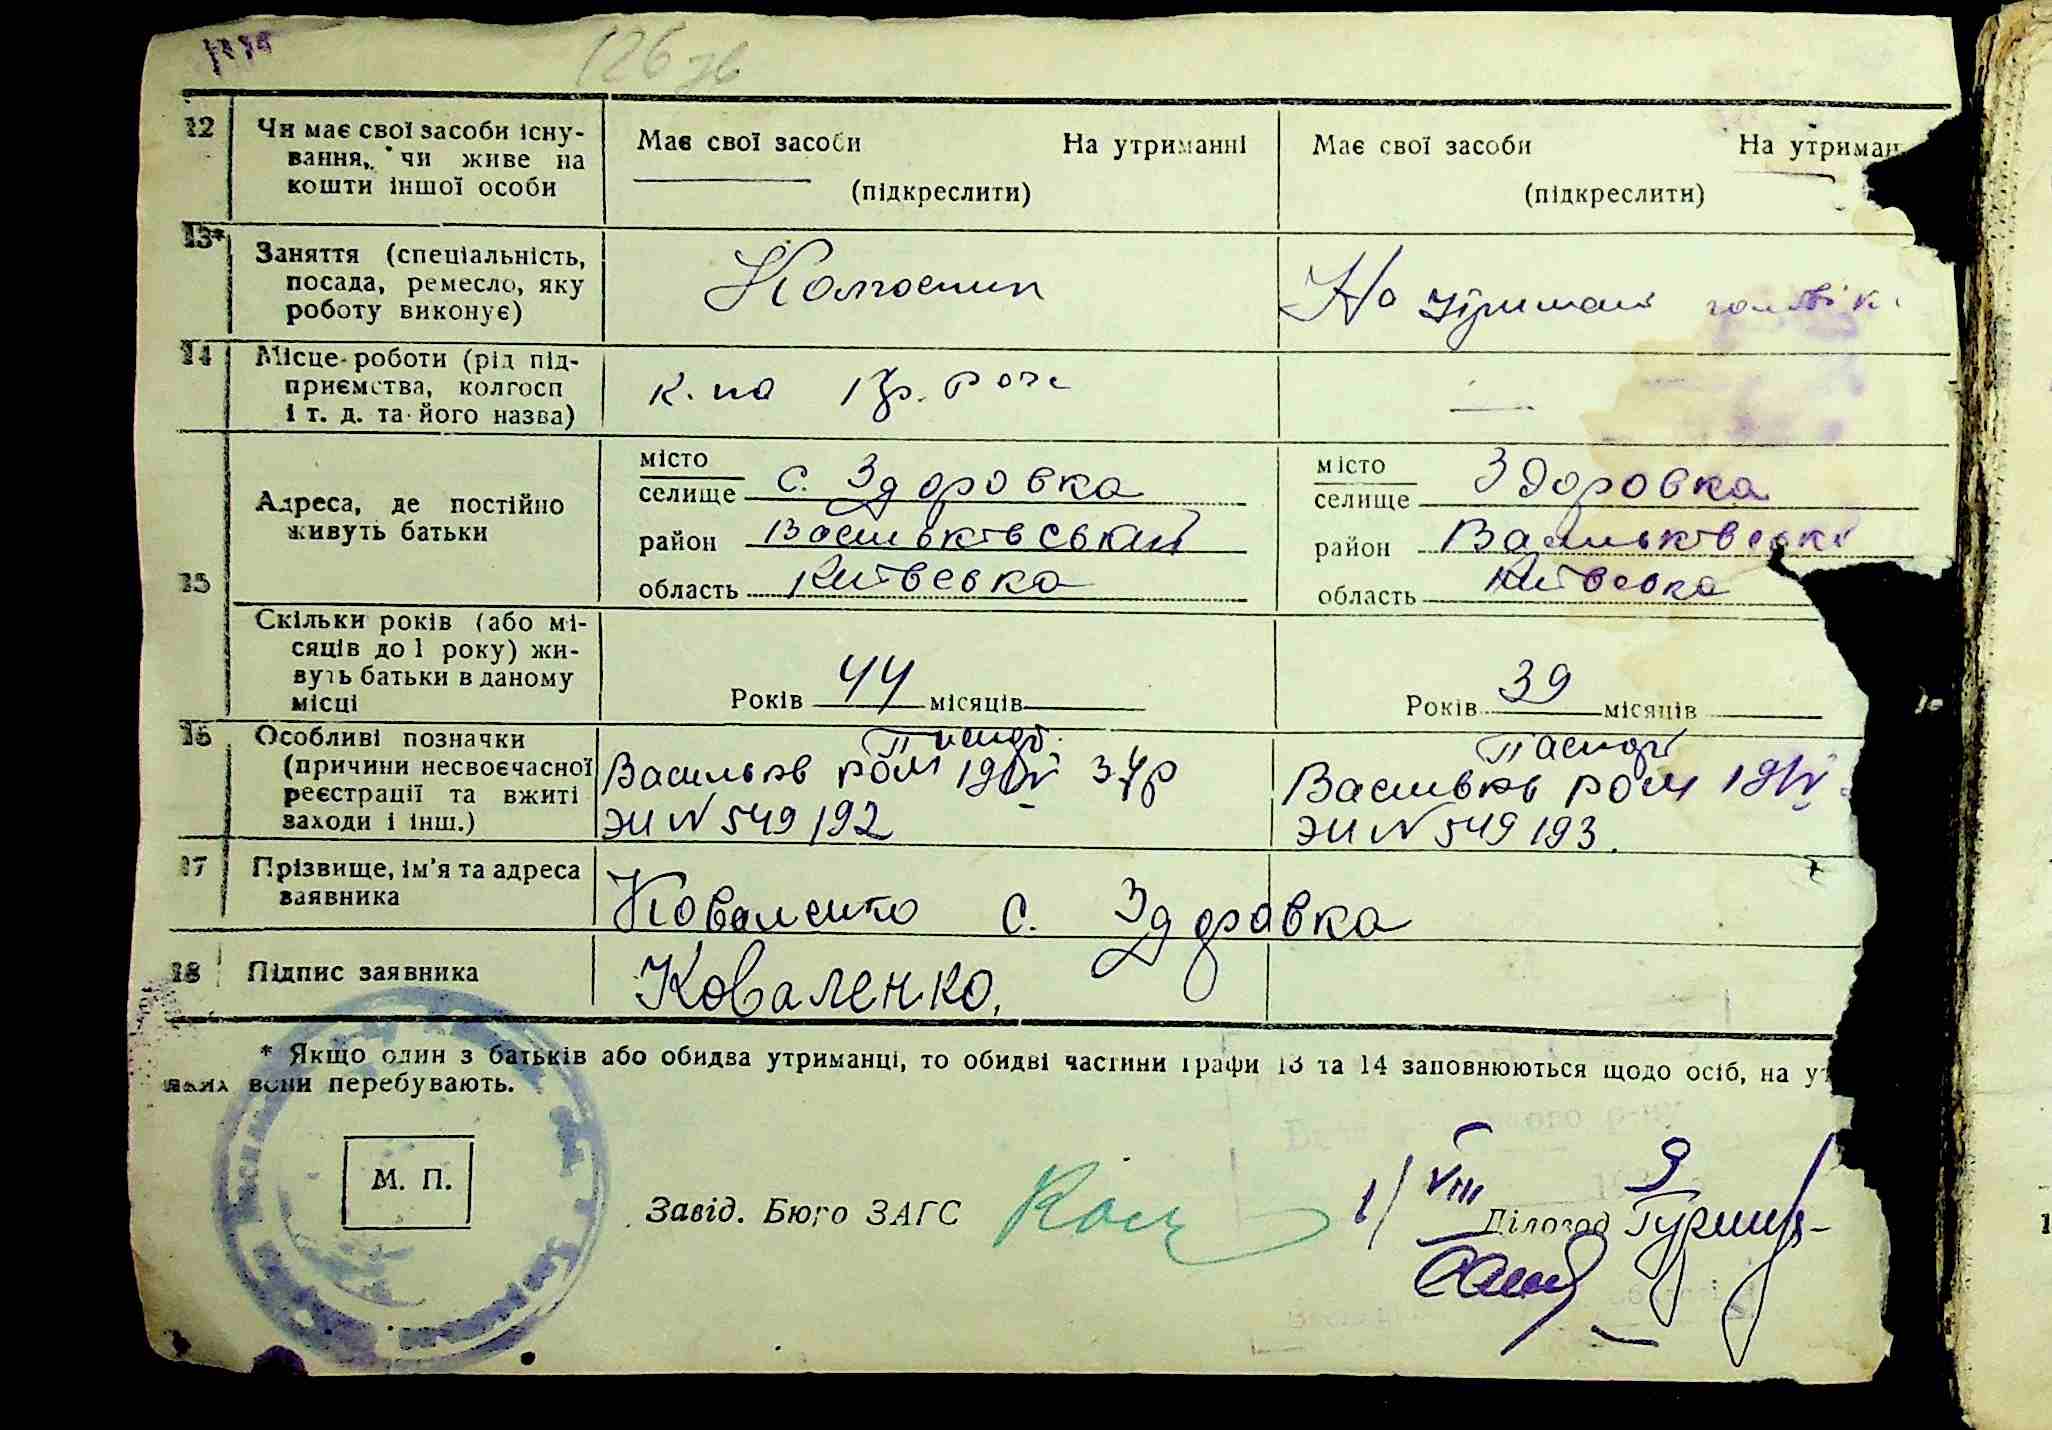 126 зв
12 Чи має свої засоби існу-
вання, чи живе на
кошти іншої особи
Має свої засоби На утриманні
(підкреслити)
Має свої засоби На утриман
(підкреслити)
13* Заняття (спеціальність,
посада, ремесло, яку
роботу виконує)
Колгоспник
На утримані чоловіка
14 Місце роботи (рід під-
приємства, колгосп
і т. д. та його назва)
15 Адреса, де постійно
живуть батьки
місто
селище с. Здоровка
район Васильківський
область Київська
місто
селище Здоровка
район Васильківськ
область Київська
Скільки років (або мі-
сяців до 1 року) жи-
вуть батьки в даному
місці
Років 44 місяців
Років 39 місяців
16 Особливі позначки
(причини несвоєчасної
реєстрації та вжиті
заходи і інш.)
Паспорт
Васильків РОМ
ЭИ N 549192
Паспорт
Васильків РОМ
ЭИ N 549193.
17 Прізвище, ім'я та адреса
заявника
Коваленко с. Здоровка
18 Підпис заявника
Коваленко.
* Якщо один з батьків або обидва утриманці, то обидві частини графи 13 та 14 заповнюються щодо осіб, на ут
яких вони перебувають.
М. П.
Завід. Бюро ЗАГС
1/VIII
Діловод